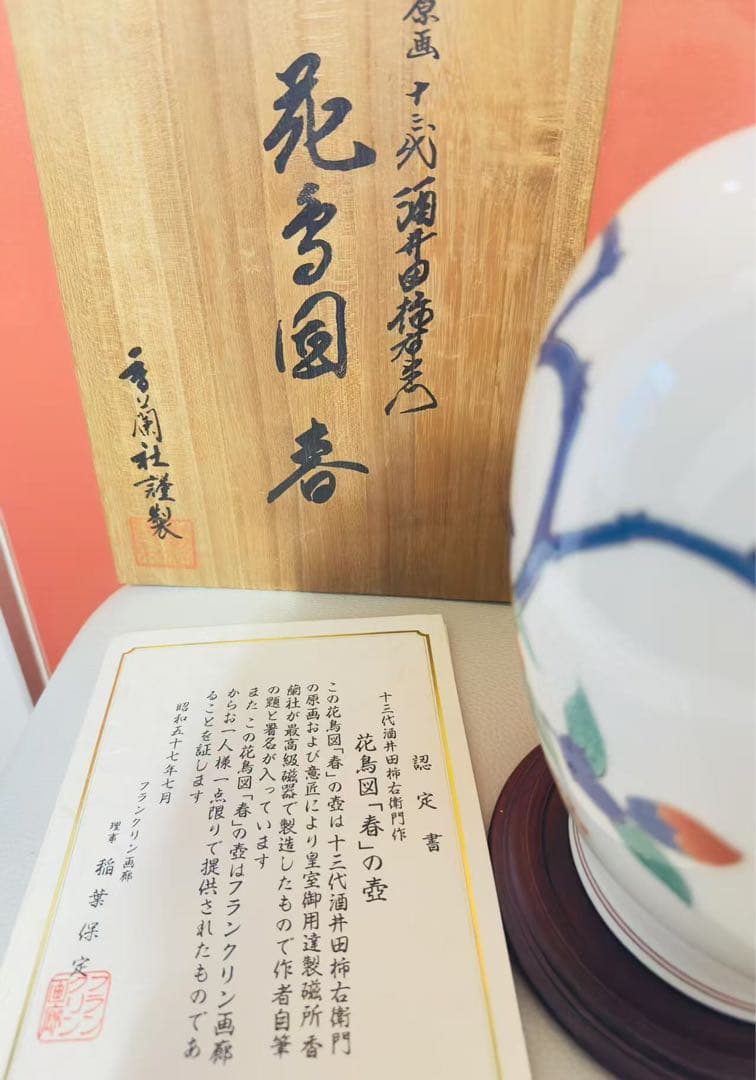 原画 十三代 酒井田柿右衛門
花鳥図 春
香蘭社謹製
認定書
十三代酒井田柿右衛門作
花鳥図「春」の壺
この花鳥図「春」の壺は十三代酒井田柿右衛門
の原画および意匠により皇室御用達製磁所香
蘭社が最高級磁器で製造したもので作者自筆
の題と署名が入っています
また この花鳥図「春」の壺はフランクリン画廊
からお一人様一点限りで提供されたものであ
ることを証します
昭和五十七年七月
フランクリン画廊
理事 稲葉保定
フランクリン画廊